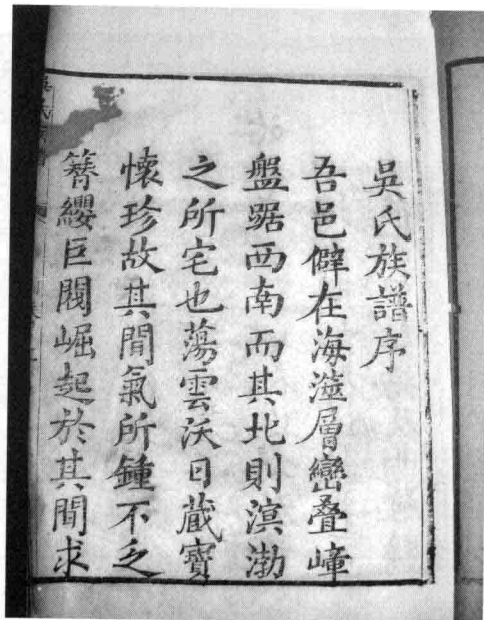 吳氏族譜序
吾邑僻在海澨層巒叠嶂
盤踞西南而其北則溟渤
之所宅也蕩雲沃日藏寶
懷珍故其間氣所鍾不乏
簪纓巨閥崛起於其間求